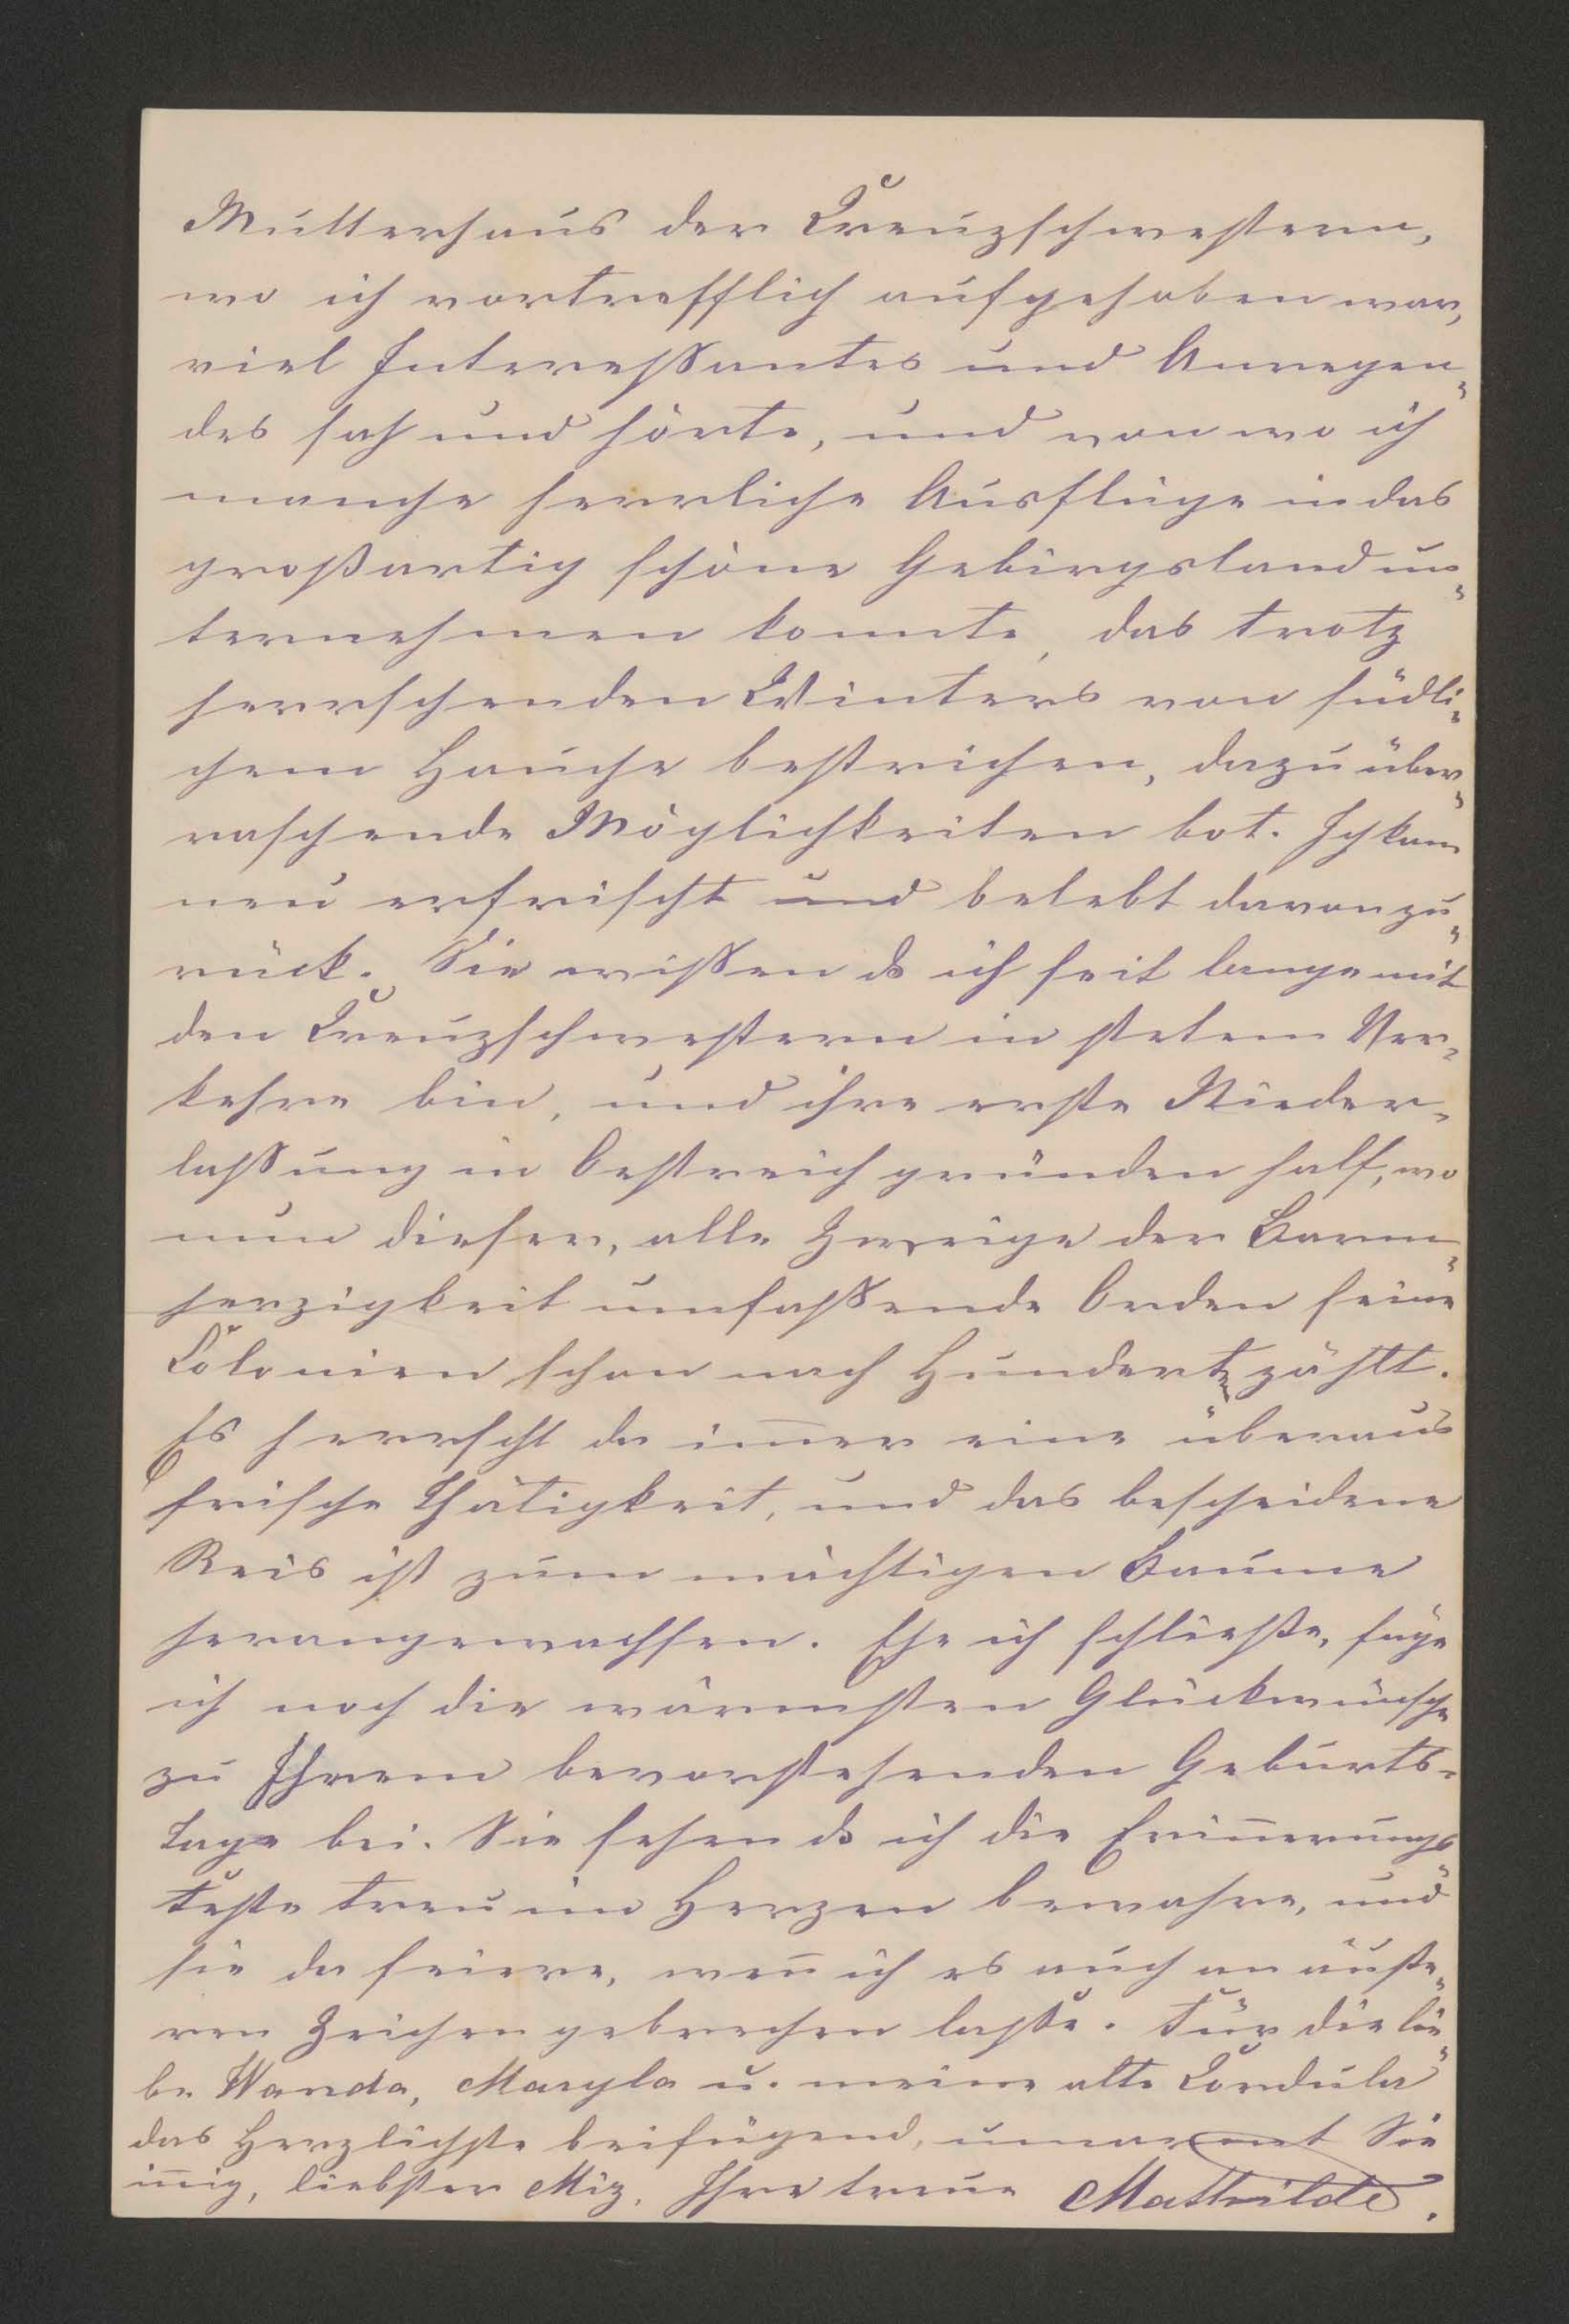 Mutterhaus der Creuzschwestern,
wo ich vortrefflich aufgehoben war,
viel Interessantes und Anregen-
des sah und hörte, und von wo ich
manche herrliche Ausflüge in das
großartig schöne Gebirgsland un-
ternehmen konnte, das trotz
herrschenden Winters von südli-
chem Hauche bestrichen, dazu über-
raschende Möglichkeiten bot. Ich kam
neu erfrischt und belebt davon zu-
rück. Sie wissen ds ich seit lange mit
den Creuzschwestern in stetem Ver-
kehre bin, und ihre erste Nieder-
lassung in Oestreich gründen half, wo
nun dieser, alle Zweige der Barm-
herzigkeit umfassende Orden seine
Colonien schon nach Hunderten zählt.
Es herrscht da im̅er eine überaus
frische Thätigkeit, und das bescheidene
Reis ist zum mächtigen Baume
herangewachsen. Ehe ich schließe, füge
ich noch die wärmsten Glückwünsche
zu Ihrem bevorstehenden Geburts-
tage bei. Sie sehen ds ich die Erin̅erungs-
feste treu im Herzen bewahre, und
sie da feiere, wen̅ ich es auch an äuße-
ren Zeichen gebrechen lasse. Für die lie-
be Wanda, Maryla u. meine alte Cordula
das Herzlichste beifügend, umarmt Sie
in̅ig, liebster Miz, Ihre treue Mathilde.